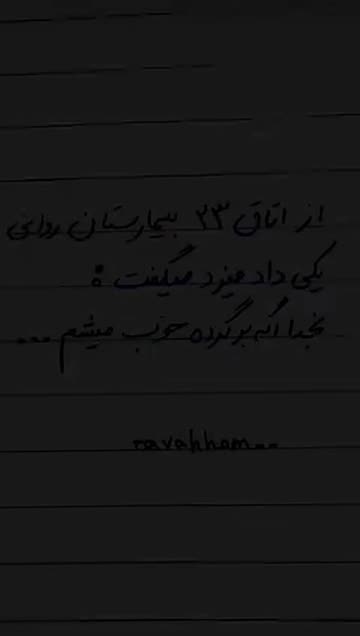 از اتاق ۲۳ بیمارستان روانی
یکی داد میزد میگفت :
بخدا اگه برگرده خوب میشم ...
ravahham..